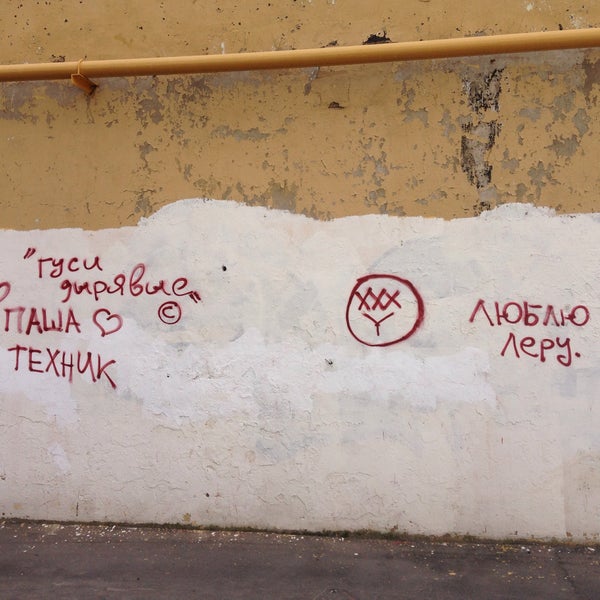 "гуси
дырявые"
©
ПАША
ТЕХНИК
XXX
Y
ЛЮБЛЮ
Леру.